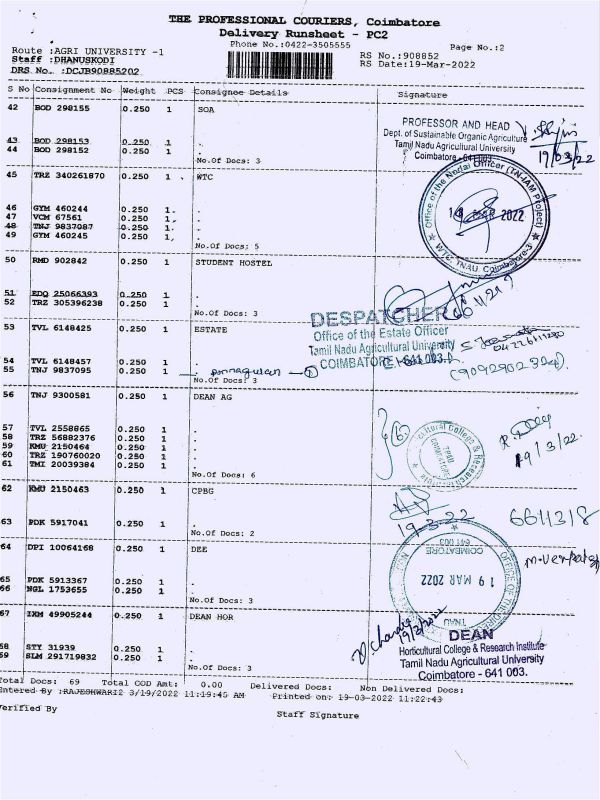 THE PROFESSIONAL COURIERS, Coimbatore
Delivery Runsheet - PC2
Phone No.:0422-3505555
Page No.:2
Route :AGRI UNIVERSITY -1
Staff :DHANUSKODI
DRS No. :DCJB90885202
RS No.:908852
RS Date:19-Mar-2022
S No Consignment No Weight PCS Consignee Details Signature
42 BOD 298155 0.250 1 SOA
43 BOD 298153 0.250 1 .
44 BOD 298152 0.250 1 .
No.Of Docs: 3
PROFESSOR AND HEAD
Dept. of Sustainable Organic Agriculture
Tamil Nadu Agricultural University
Coimbatore - 641 003.
19/03/22
45 TRZ 340261870 0.250 1 WTC
46 GYM 460244 0.250 1 .
47 VCM 67561 0.250 1 .
48 TNJ 9837087 0.250 1 .
49 GYM 460245 0.250 1 .
No.Of Docs: 5
Office of the Nodal Officer (TN-IAM Project)
MAR 2022
WTC, TNAU, Coimbatore-3
50 RMD 902842 0.250 1 STUDENT HOSTEL
51 EDQ 25066393 0.250 1 .
52 TRZ 305396238 0.250 1 .
No.Of Docs: 3
53 TVL 6148425 0.250 1 ESTATE
54 TVL 6148457 0.250 1 .
55 TNJ 9837095 0.250 1 .
No.Of Docs: 3
DESPATCHER
Office of the Estate Officer
Tamil Nadu Agricultural University
COIMBATORE - 641 003.
56 TNJ 9300581 0.250 1 DEAN AG
57 TVL 2558865 0.250 1 .
58 TRZ 56882376 0.250 1 .
59 KMU 2150464 0.250 1 .
60 TRZ 190760020 0.250 1 .
61 TMI 20039384 0.250 1 .
No.Of Docs: 6
6
TNAU
COIMBATORE
19/3/22
62 KMU 2150463 0.250 1 CPBG
63 PDK 5917041 0.250 1 .
No.Of Docs: 2
19-3-22
6611318
64 DPI 10064168 0.250 1 DEE
65 PDK 5913367 0.250 1 .
66 NGL 1753655 0.250 1 .
No.Of Docs: 3
COIMBATORE
641 003
19 MAR 2022
TNAU
67 IXM 49905244 0.250 1 DEAN HOR
68 STY 31939 0.250 1 .
69 SLM 291719832 0.250 1 .
No.Of Docs: 3
19/3/2022
DEAN
Horticultural College & Research Institute
Tamil Nadu Agricultural University
Coimbatore - 641 003.
Total Docs: 69 Total COD Amt: 0.00 Delivered Docs: Non Delivered Docs:
Entered By :RAJESHWARI2 3/19/2022 11:19:45 AM Printed on: 19-03-2022 11:22:43
Verified By
Staff Signature